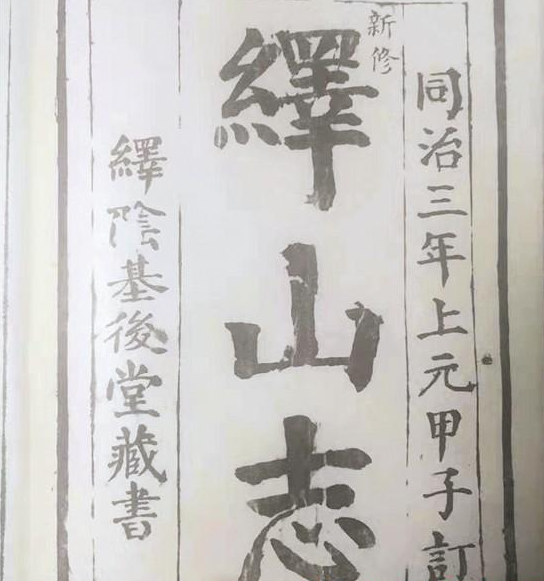 同治三年上元甲子訂
新修
繹山志
繹陰基後堂藏書